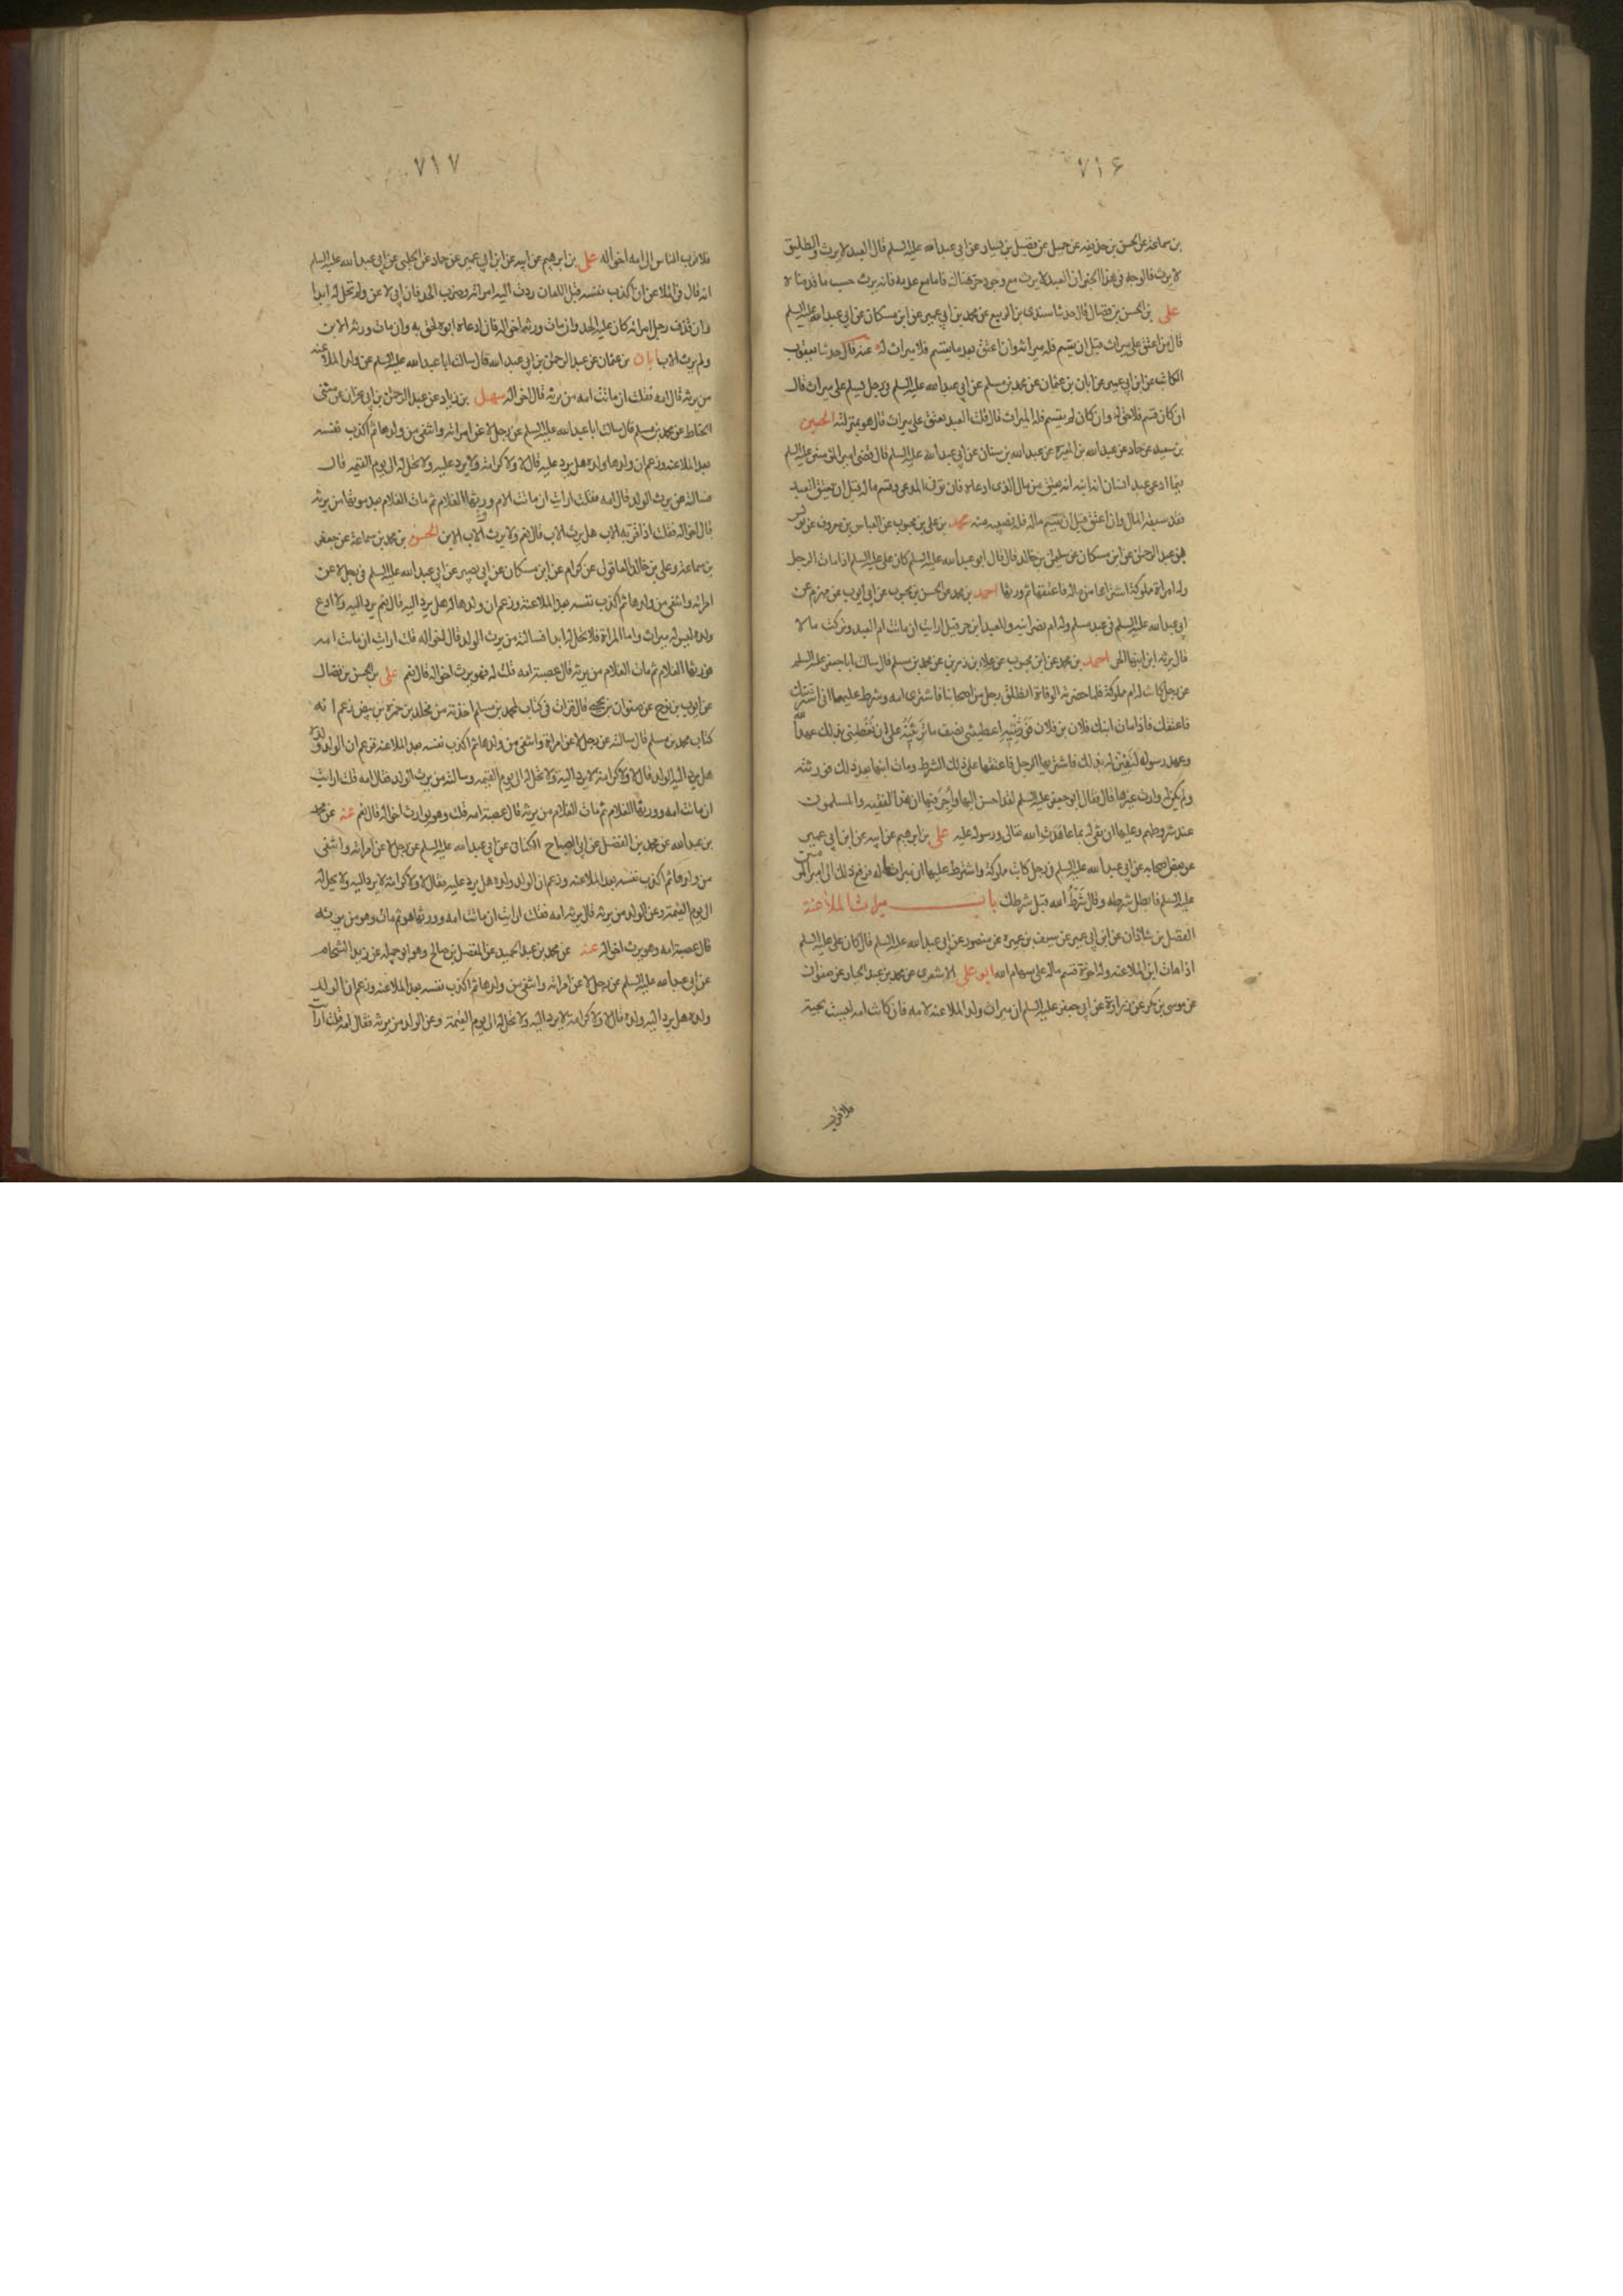 ٧١۶
بن سماعة عن الحسن بن حذيفه عن جميل عن فضيل بن يسار عن ابي عبد الله عليه السلم قال العبد لا يرث والطليق
لا يرث فالوجه فى هذا الخبر ان العبد لا يرث مع وجود حر هناك فاما مع عدمه فانه يرث حسب ما قدمنا ه
على بن الحسن بن فضال قال حدثنا سندى بن الربيع عن محمد بن ابي عمير عن ابن مسكان عن ابي عبد الله عليه السلم
قال من اعتق على ميراث قبل ان يقسم فله ميراثه وان اعتق بعد ما يقسم فلا ميراث له عنه قال حدثنا يعقوب
الكاتب عن ابن ابي عمير عن ابان بن عثمان عن محمد بن مسلم عن ابي عبد الله عليه السلم فى رجل يسلم على ميراث قال
ان كان قسم فلا حق له وان كان لم يقسم فله الميراث قال قلت العبد يعتق على ميراث قال هو بمنزلته الحسين
بن سعيد عن حماد عن عبد الله بن المغيرة عن عبد الله بن سنان عن ابي عبد الله عليه السلم قال قضى امير المومنين عليه السلم
فيما ادعى عبد انسان انه ابنه انه يعتق من مال الذى ادعاه فان توفى المدعى وقسم ماله قبل ان يعتق العبد
فقد سبقه المال وان اعتق قبل ان يقسم ماله فله نصيبه منه محمد بن على بن محبوب عن العباس بن معروف عن يونس
بن عبد الرحمن عن ابن مسكان عن سليمن بن خالد قال قال ابو عبد الله عليه السلم كان على عليه السلم اذا مات الرجل
وله امراة مملوكة اشتراها من ماله فاعتقها ثم ورثها احمد بن محمد عن الحسن بن محبوب عن ابي ايوب عن مهزم عن
ابي عبد الله عليه السلم فى عبد مسلم وله ام نصرانيه وللعبد ابن حر قيل ارايت ان ماتت ام العبد وتركت مالا
قال يرثه ابن ابنها الحر احمد بن محمد عن ابن محبوب عن علاء بن رزين عن محمد بن مسلم قال سالت ابا جعفر عليه السلم
عن رجل كانت له ام مملوكة فلما حضرته الوفاة انطلق رجل من اصحابنا فاشترى امه وشرط عليها انى اشتريك
فاعتقك فاذا مات ابنك فلان بن فلان فورثتيه اعطيتنى نصف ما ترثينه على ان تعطينى بذلك عهد الله
وعهد رسوله لتفين لى بذلك فاشتريها الرجل فاعتقها على ذلك الشرط ومات ابنها بعد ذلك فورثته
ولم يكن له وارث غيرها قال فقال ابو جعفر عليه السلم لقد احسن اليها واجر فيها ان هذا لفقيه والمسلمون
عند شروطهم وعليها ان تفى له بما عاهدت الله تعالى ورسوله عليه على بن ابرهيم عن ابيه عن ابن ابي عمير
عن بعض اصحابه عن ابي عبد الله عليه السلم فى رجل كاتب مملوكة واشترط عليها ان ميراثها له فرفع ذلك الى امير المومنين
عليه السلم فابطل شرطه وقال شرط الله قبل شرطك باب ميراث الملاعنة
الفضل بن شاذان عن ابن ابي عمير عن سيف بن عميره عن منصور عن ابي عبد الله عليه السلم قال كان على عليه السلم
اذا مات ابن الملاعنه وله اخوة قسم ماله على سهام الله ابو على الاشعرى عن محمد بن عبد الجبار عن صفوان
عن موسى بن بكر عن زرارة عن ابي جعفر عليه السلم ان ميراث ولد الملاعنه لامه فان كانت امه ليست بحية
فلاقرب
٧١٧
فلاقرب الناس الى امه اخواله على بن ابرهيم عن ابيه عن ابن ابي عمير عن حماد عن الحلبى عن ابي عبد الله عليه السلم
انه قال فى الملاعن ان اكذب نفسه قبل اللعان ردت اليه امراته وضرب الحد فان ابي لاعن ولم تحل له ابدا
وان قذف رجل امراته كان عليه الحد وان مات ورثه اخواله فان ادعاه ابوه لحق به وان مات ورثه الابن
ولم يرثه الاب ابان بن عثمان عن عبد الرحمن بن ابي عبد الله قال سالت ابا عبد الله عليه السلم عن ولد الملاعنه
من يرثه قال امه فقلت ان ماتت امه من يرثه قال اخواله سهل بن زياد عن عبد الرحمن بن ابي نجران عن مثنى
الحناط عن محمد بن مسلم قال سالت ابا عبد الله عليه السلم عن رجل لاعن امراته وانتفى من ولدها ثم اكذب نفسه
بعد الملاعنه وزعم ان ولدها ولده هل يرد عليه قال لا ولا كرامة لا يرد عليه ولا تحل له الى يوم القيمه قال
فسالته من يرث الولد قال امه فقلت ارايت ان ماتت الام وورثها الغلام ثم مات الغلام بعد موتها من يرثه
قال اخواله فقلت اذا اقر به الاب هل يرث الاب قال نعم ولا يرث الاب الابن الحسن بن محمد بن سماعة عن جعفر
بن سماعة وعلى بن خالد العاقولى عن كرام عن ابن مسكان عن ابي بصير عن ابي عبد الله عليه السلم فى رجل لاعن
امراته وانتفى من ولدها ثم اكذب نفسه بعد الملاعنة وزعم ان ولدها له هل يرد اليه قال نعم يرد اليه ولا ادع
ولده ليس له ميراث واما المراة فلا تحل له ابدا فسالته من يرث الولد قال اخواله قلت ارايت ان ماتت امه
فورثها الغلام ثم مات الغلام من يرثه قال عصبة امه قلت له فهو يرث اخواله قال نعم على بن الحسن بن فضال
عن ايوب بن نوح عن صفوان بن يحيى قال قرات فى كتاب لمحمد بن مسلم اخذته من مخلد بن حمزة بن بيض زعم انه
كتاب محمد بن مسلم قال سالته عن رجل لاعن امراة وانتفى من ولدها ثم اكذب نفسه بعد الملاعنه وزعم ان الولد ولده
هل يرد اليه الولد قال لا ولا كرامة لا يرد اليه ولا تحل له الى يوم القيمه وسالته من يرث الولد فقال امه قلت ارايت
ان ماتت امه وورثها الغلام ثم مات الغلام من يرثه قال عصبة امه قلت وهو يوارث اخواله قال نعم عنه عن محمد
بن عبد الله عن محمد بن الفضيل عن ابي الصباح الكنانى عن ابي عبد الله عليه السلم عن رجل لاعن امراته وانتفى
من ولدها ثم اكذب نفسه بعد الملاعنه وزعم ان الولد ولده هل يرد عليه فقال لا ولا كرامة لا يرد اليه ولا تحل له
الى يوم القيمة وعن الولد من يرثه قال يرثه امه فقلت ارايت ان ماتت امه وورثها هو ثم مات وهو من يرثه
قال عصبة امه وهو يرث اخواله عنه عن محمد بن عبد الحميد عن المفضل بن صالح وهو ابو جميله عن زيد الشحام
عن ابي عبد الله عليه السلم عن رجل لاعن امراته وانتفى من ولدها ثم اكذب نفسه بعد الملاعنه وزعم ان الولد
ولده هل يرد اليه ولده قال لا ولا كرامة لا يرد اليه ولا تحل له الى يوم القيمة وعن الولد من يرثه فقال امه قلت ارايت